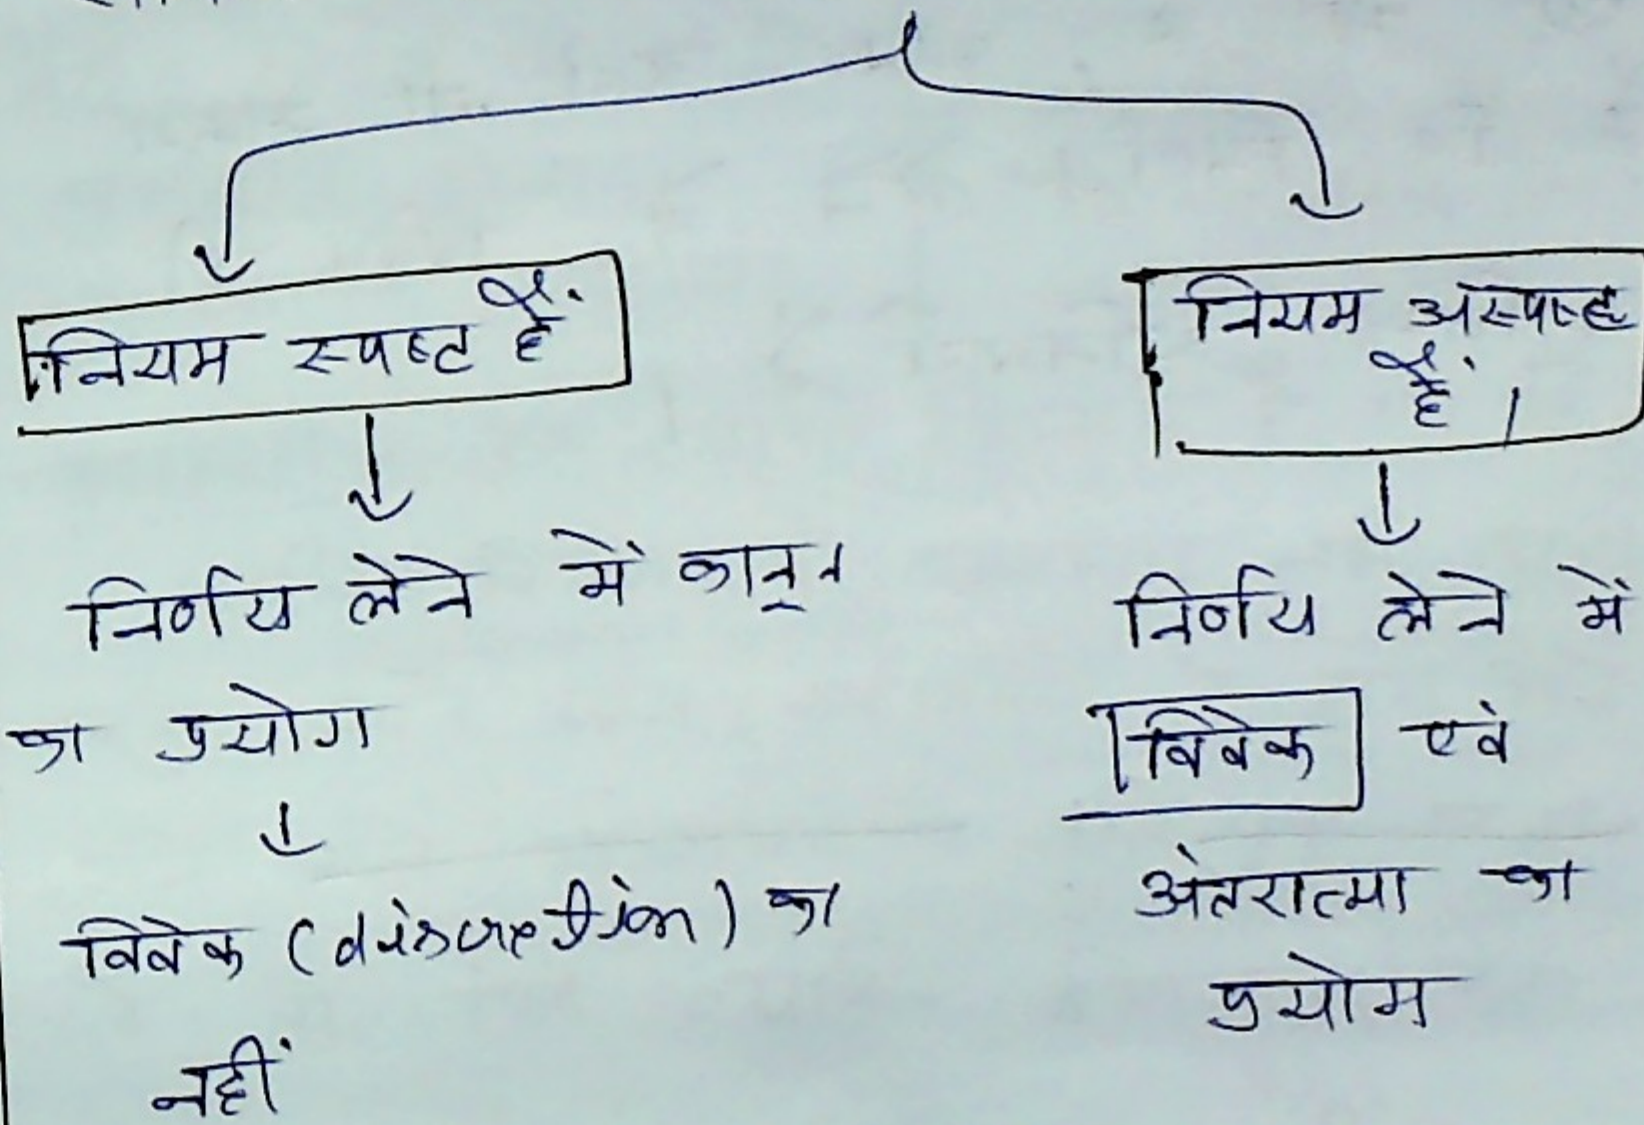 नियम स्पष्ट हैं
निर्णय लेने में कानून
का प्रयोग
विवेक (discretion) का
नहीं
नियम अस्पष्ट
हैं।
निर्णय लेने में
विवेक एवं
अंतरात्मा का
प्रयोग